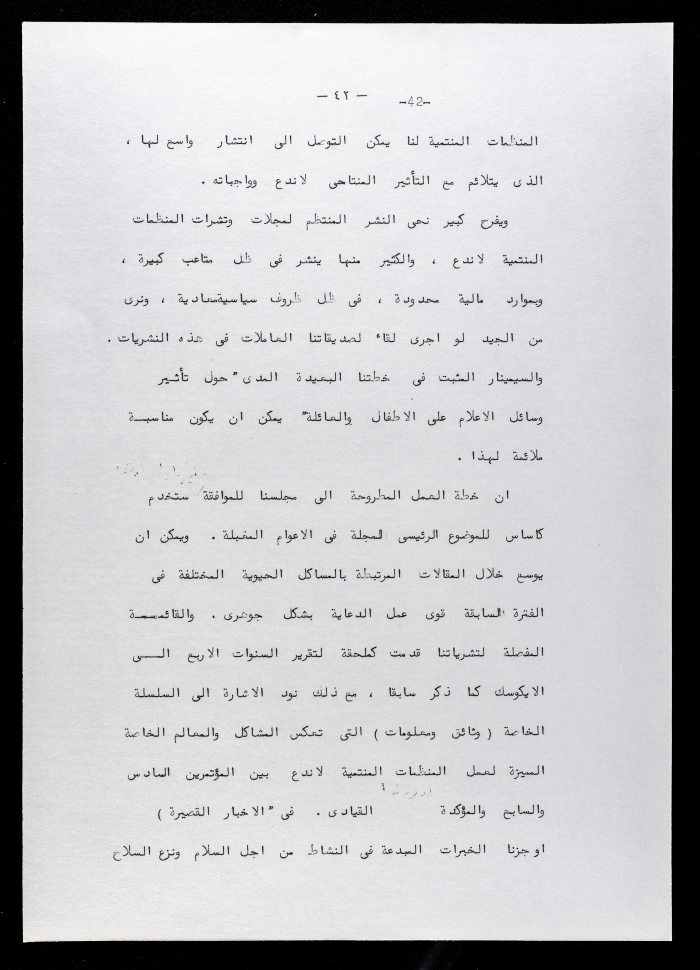 — ٤٢ — -42-
المنظمات المنتمية لنا يمكن التوصل الى انتشار واسع لها ،
الذى يتلائم مع التأثير المتنامى لاندع وواجباته .
ويفرح كبير نحى النشر المنتظم لمجلات ونشرات المنظمات
المنتمية لاندع ، والكثير منها ينشر فى ظل متاعب كبيرة ،
وبموارد مالية محدودة ، فى ظل ظروف سياسية معادية ، ونرى
من الجيد لو اجرى لقاء لصديقاتنا العاملات فى هذه النشريات .
والسيمينار المثبت فى خطتنا البعيدة المدى "حول تأثير
وسائل الاعلام على الاطفال والعائلة" يمكن ان يكون مناسبة
ملائمة لهذا .
ان خطة العمل المطروحة الى مجلسنا للموافقة ستخدم
كاساس للموضوع الرئيسى للمجلة فى الاعوام المقبلة . ويمكن ان
يوسع خلال المقالات المرتبطة بالمساكل الحيوية المختلفة فى
الفترة السابقة قوى عمل الدعاية بشكل جوهرى . والقائمة
المفصلة لنشرياتنا قدمت كملحقة لتقرير السنوات الاربع الى
الايكوسك كما ذكر سابقا ، مع ذلك نود الاشارة الى السلسلة
الخاصة ( وثائق ومعلومات ) التى تعكس المشاكل والمعالم الخاصة
المميزة لعمل المنظمات المنتمية لاندع بين المؤتمرين السادس
والسابع والمؤكدة القيادى . فى "الاخبار القصيرة )
اوجزنا الخبرات المبدعة فى النشاط من اجل السلام ونزع السلاح